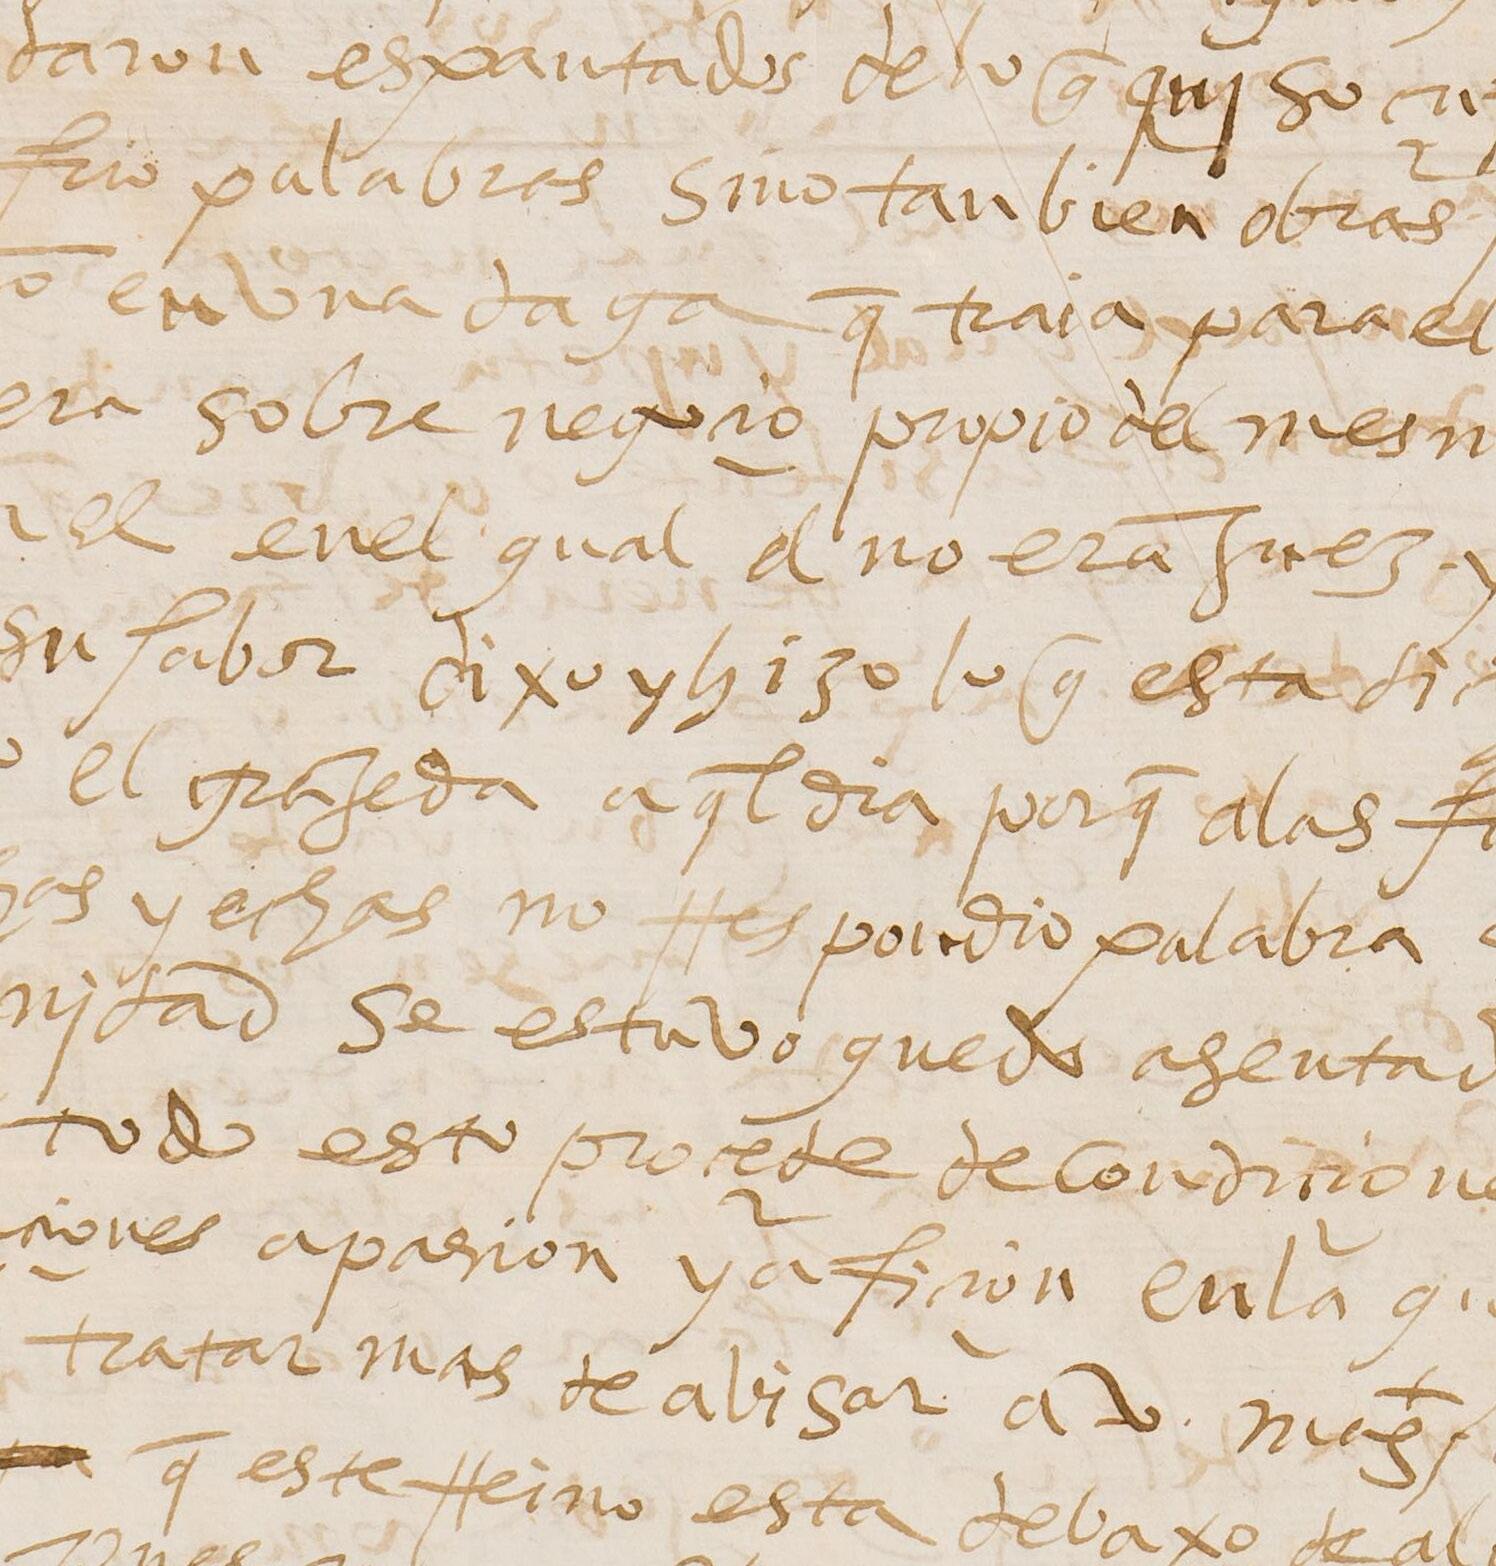 daron espantados de lo q̃ quiso
frio palabras sino tanbien obras
en vna daga q̃ traia para el
era sobre negoçio propio del mesm
el en el qual el no era Juez y
su fabor dixo y hizo lo q̃ esta di
el grageda aq̃l dia porq̃ a las
has y echas no rrespondio palabra
nidad se estuvo quedo asentad
todo esto procede de condicione
çiones apasion y afiçion en la
tratar mas de abisar a v. magt
q̃ este rreino esta debaxo de al